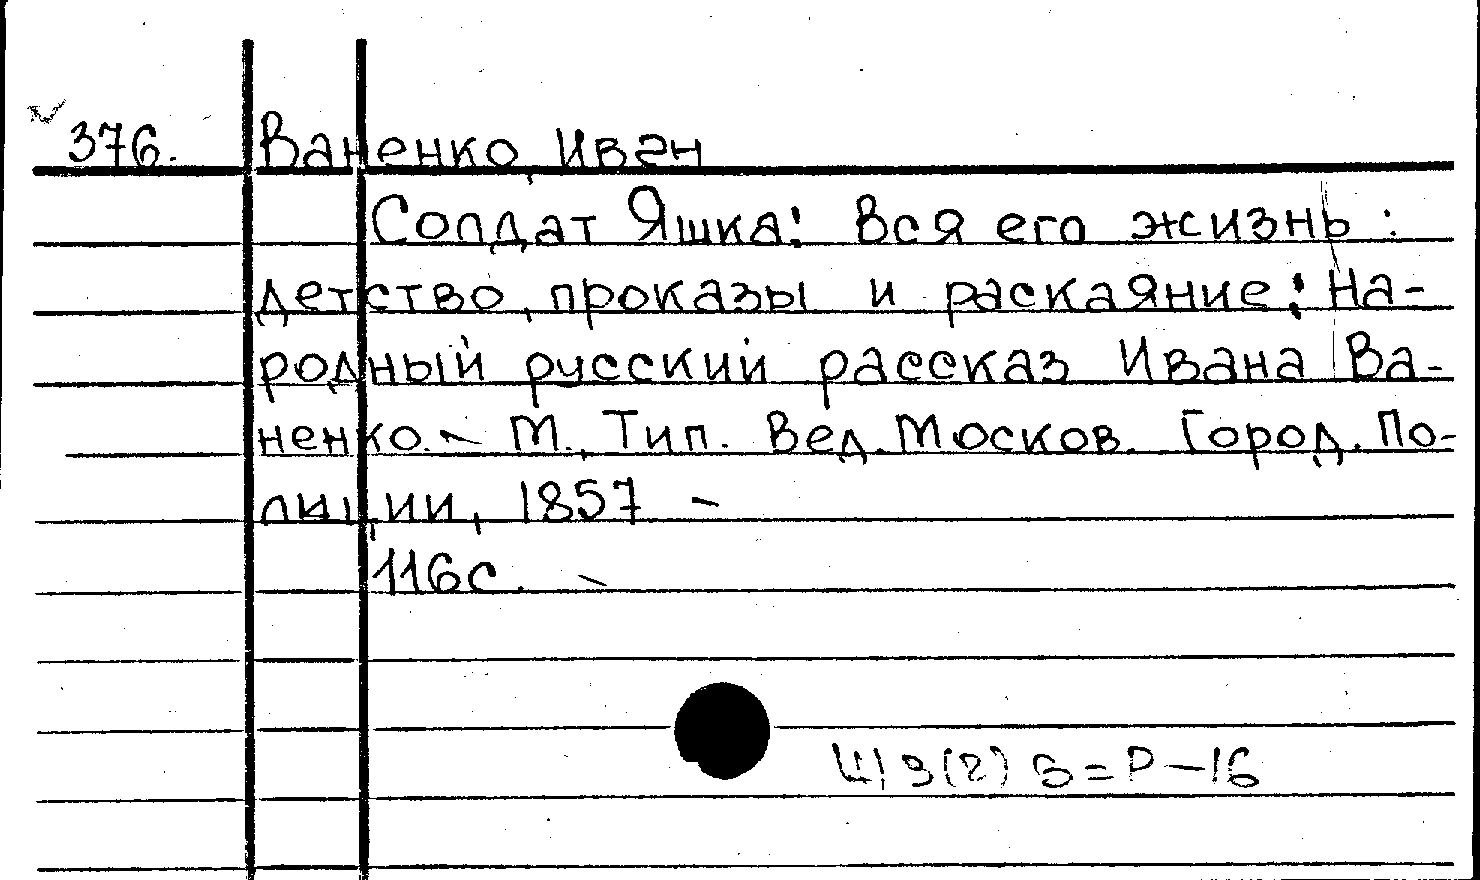 376. Ваненко, Иван
Солдат Яшка! Вся его жизнь:
детство, проказы и раскаяние: На-
родный русский рассказ Ивана Ва-
ненко. - М., Тип. Вед. Москов. Город. По-
лиции, 1857 -
116с. -
Ш 19(2) 5=Р-16